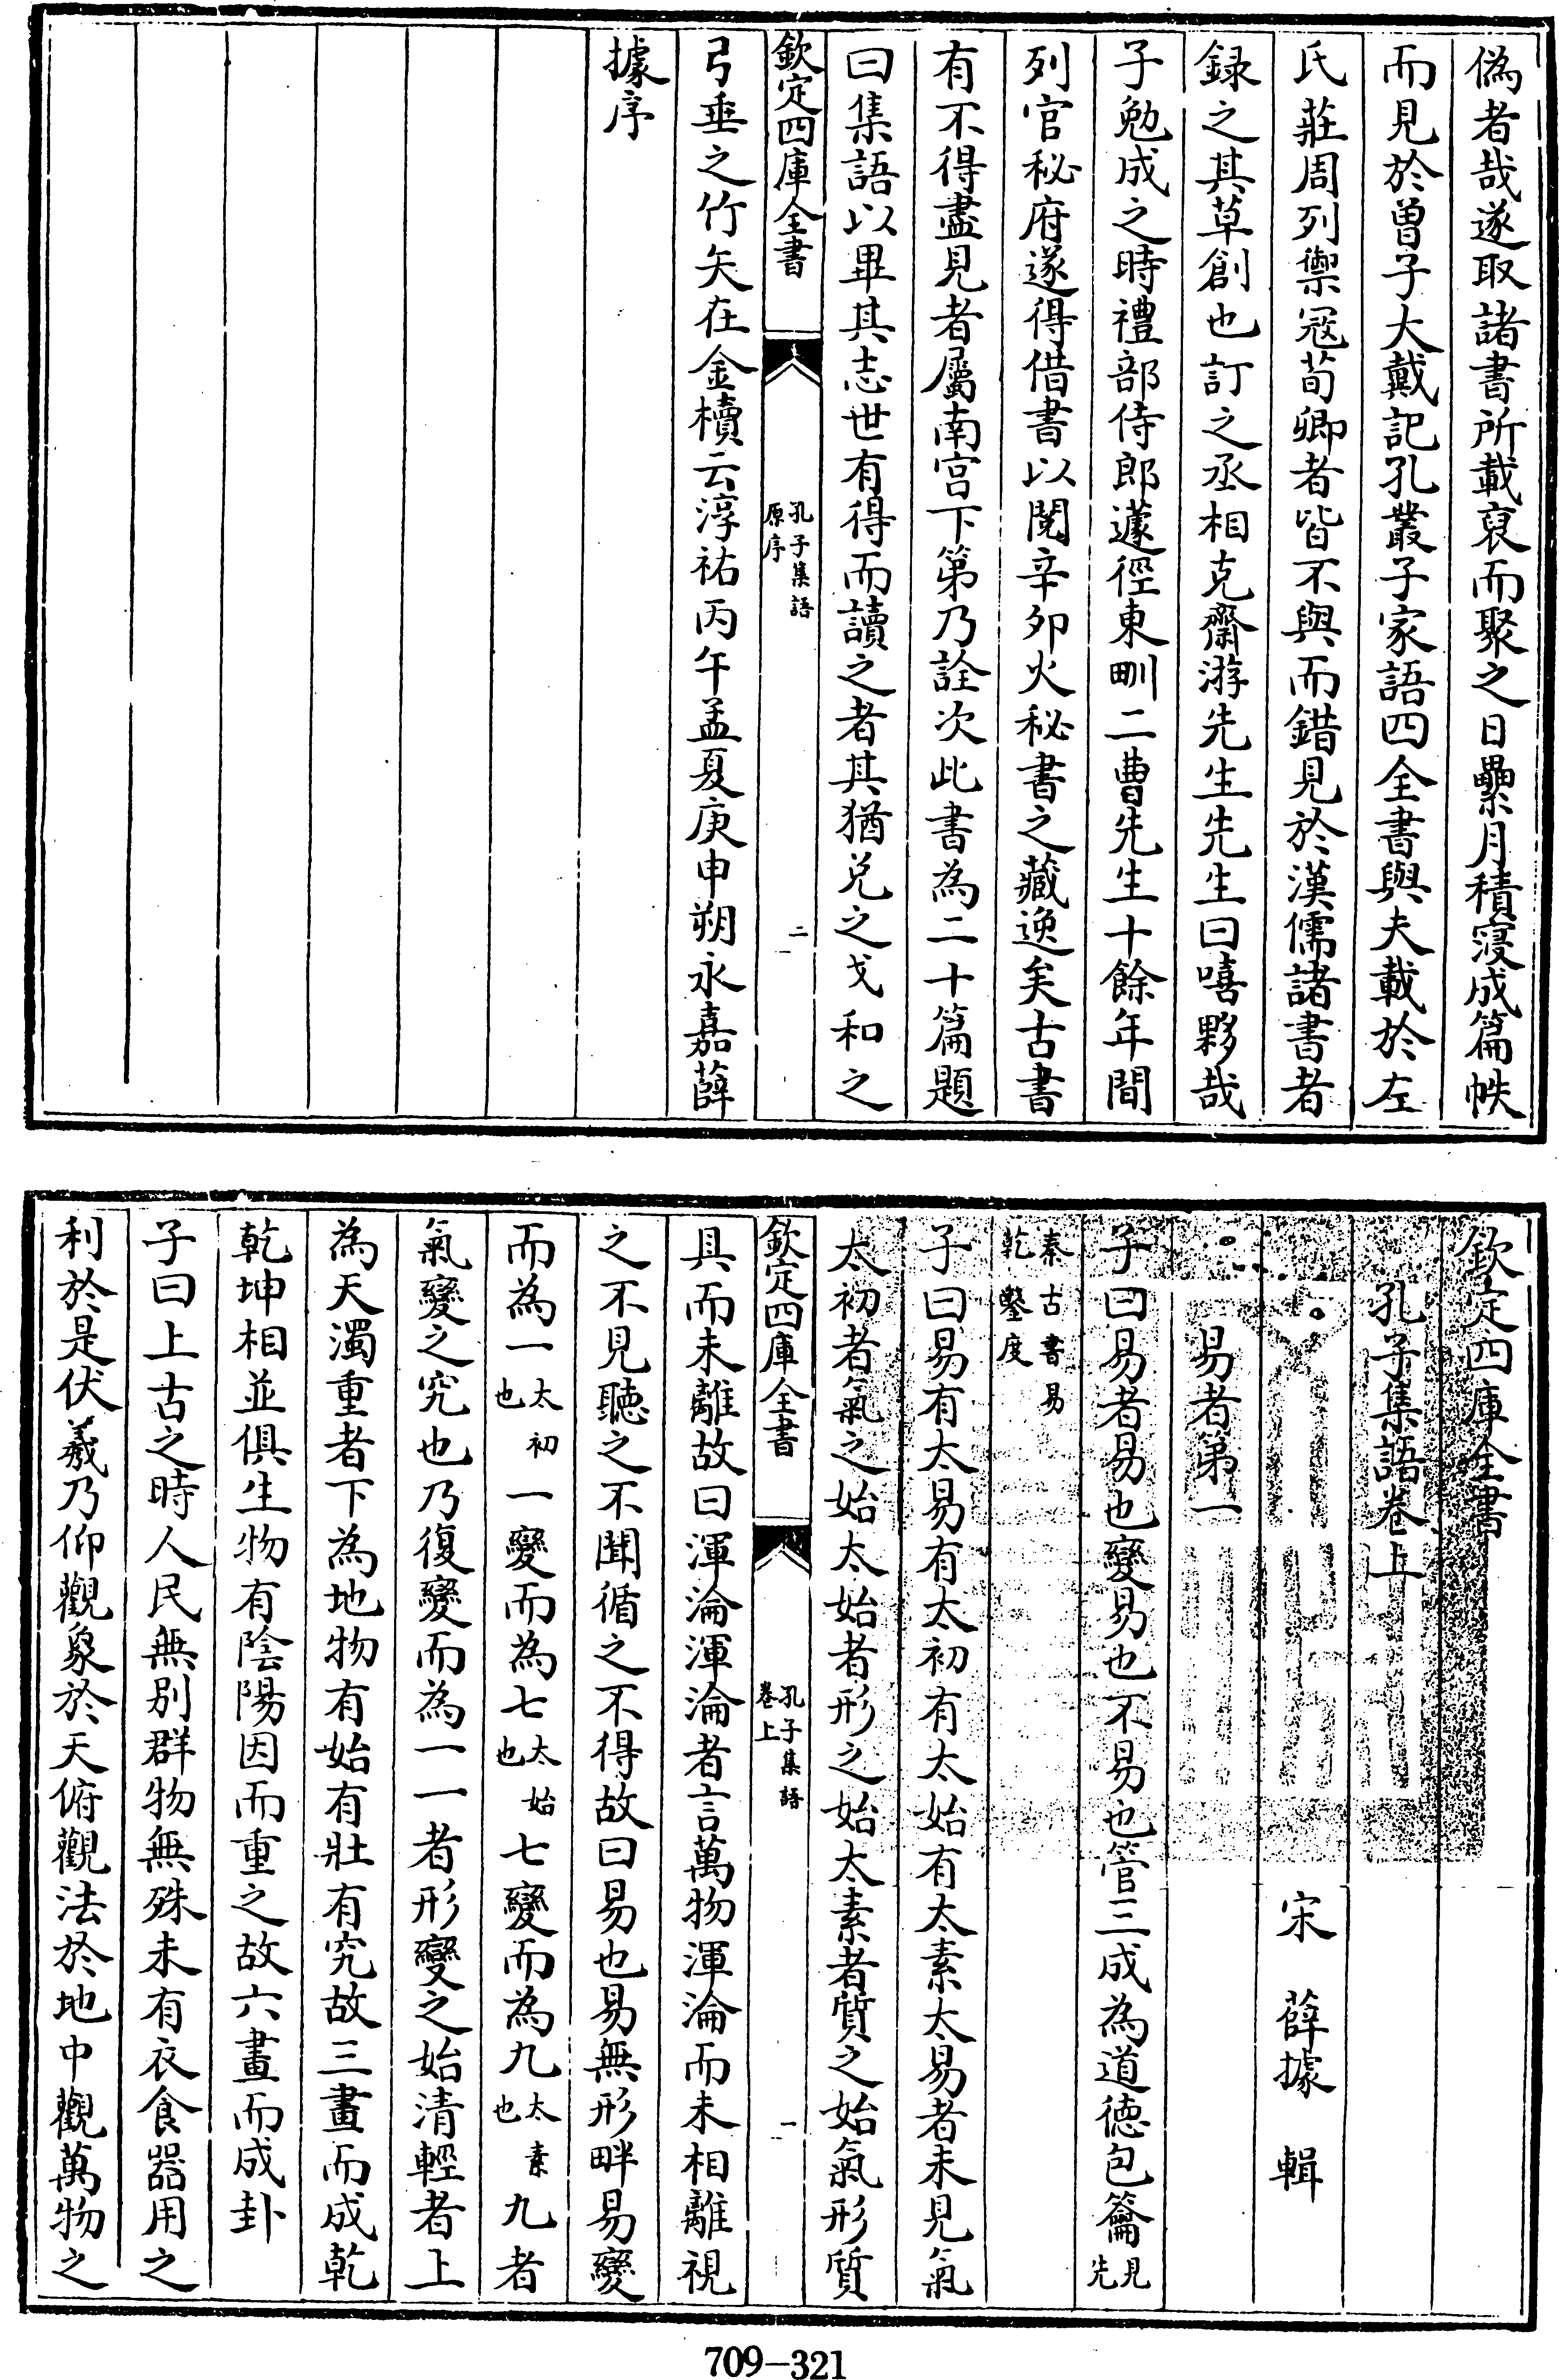 偽者哉遂取諸書所載裒而聚之日纍月積寖成篇帙
而見於曾子大戴記孔叢子家語四全書與夫載於左
氏莊周列禦冦荀卿者皆不與而錯見於漢儒諸書者
録之其草創也訂之丞相克齋游先生先生曰嘻夥哉
子勉成之時禮部侍郎蘧徑東畊二曹先生十餘年間
列官秘府遂得借書以閱辛卯火秘書之藏逸矣古書
有不得盡見者屬南宫下第乃詮次此書為二十篇題
曰集語以畢其志世有得而讀之者其猶兑之戈和之
欽定四庫全書
孔子集語
原序
二
弓垂之竹矢在金櫝云淳祐丙午孟夏庚申朔永嘉薛
據序
欽定四庫全書
孔子集語卷上
宋 薛據 輯
易者第一
子曰易者易也變易也不易也管三成為道徳包籥見先
秦古書易
乾鑿度
子曰易有太易有太初有太始有太素太易者未見氣
太初者氣之始太始者形之始太素者質之始氣形質
欽定四庫全書
孔子集語
卷上
一
具而未離故曰渾淪渾淪者言萬物渾淪而未相離視
之不見聽之不聞循之不得故曰易也易無形畔易變
而為一太初也一變而為七太始也七變而為九太素也九者
氣變之究也乃復變而為一一者形變之始清輕者上
為天濁重者下為地物有始有壯有究故三畫而成乾
乾坤相並俱生物有陰陽因而重之故六畫而成卦
子曰上古之時人民無別群物無殊未有衣食器用之
利於是伏羲乃仰觀象於天俯觀法於地中觀萬物之
709-321